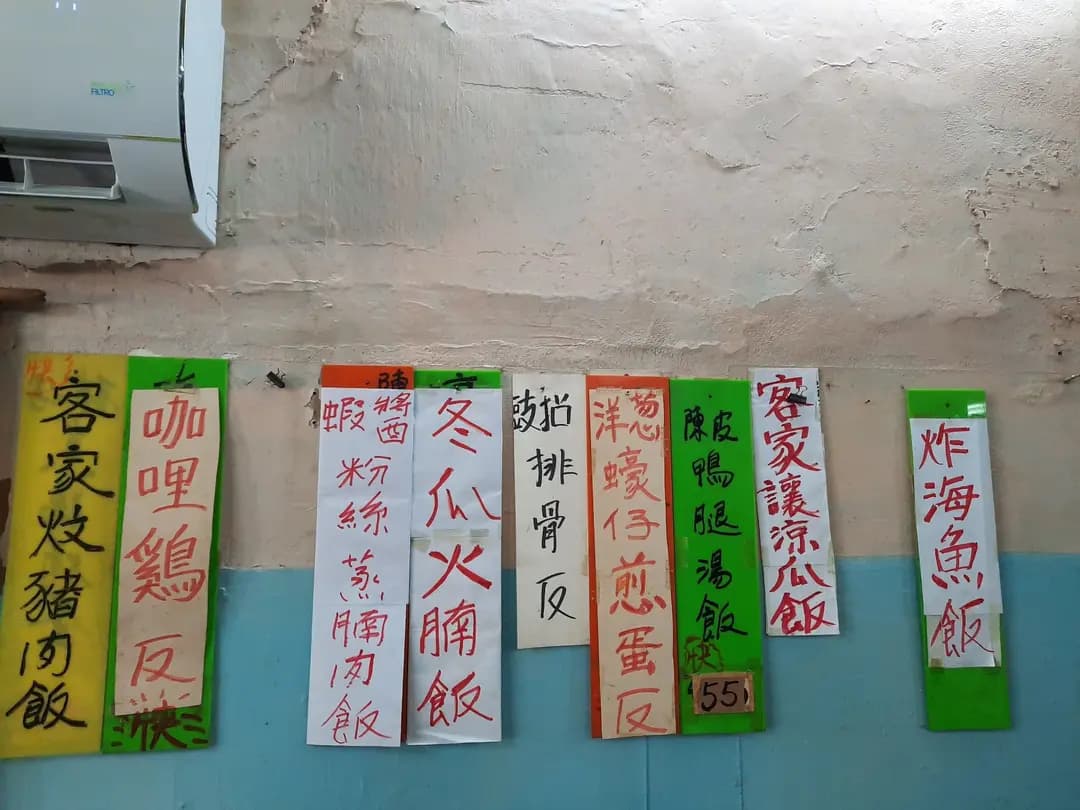 FILTRO
客家炆豬肉飯
咖哩鷄反
快
蝦醬粉絲蒸腩肉飯
冬瓜火腩飯
豉招排骨反
洋葱蠔仔煎蛋反
陳皮鴨腿湯飯
快
55
客家讓涼瓜飯
炸海魚飯